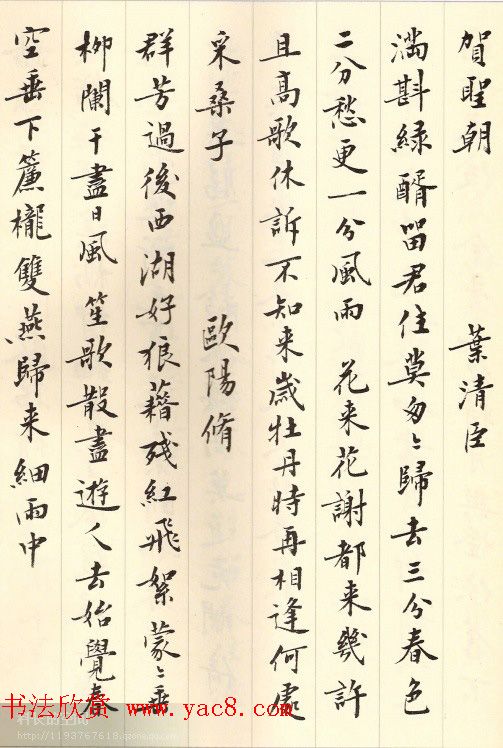 賀聖朝 葉清臣
滿斟綠醑留君住莫匆〻歸去三分春色
二分愁更一分風雨 花来花謝都来幾許
且高歌休訴不知来歲牡丹時再相逢何處
采桑子 歐陽脩
群芳過後西湖好狼藉殘紅飛絮蒙〻垂
柳闌干盡日風 笙歌散盡遊人去始覺春
空垂下簾櫳雙燕歸来細雨中
书法欣赏 www.yac8.com
http://1193767618.qzone.qq.com